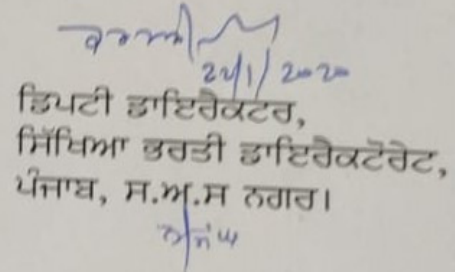 22/1/2020
ਡਿਪਟੀ ਡਾਇਰੈਕਟਰ,
ਸਿੱਖਿਆ ਭਰਤੀ ਡਾਇਰੈਕਟੋਰੇਟ,
ਪੰਜਾਬ, ਸ.ਅ.ਸ ਨਗਰ।